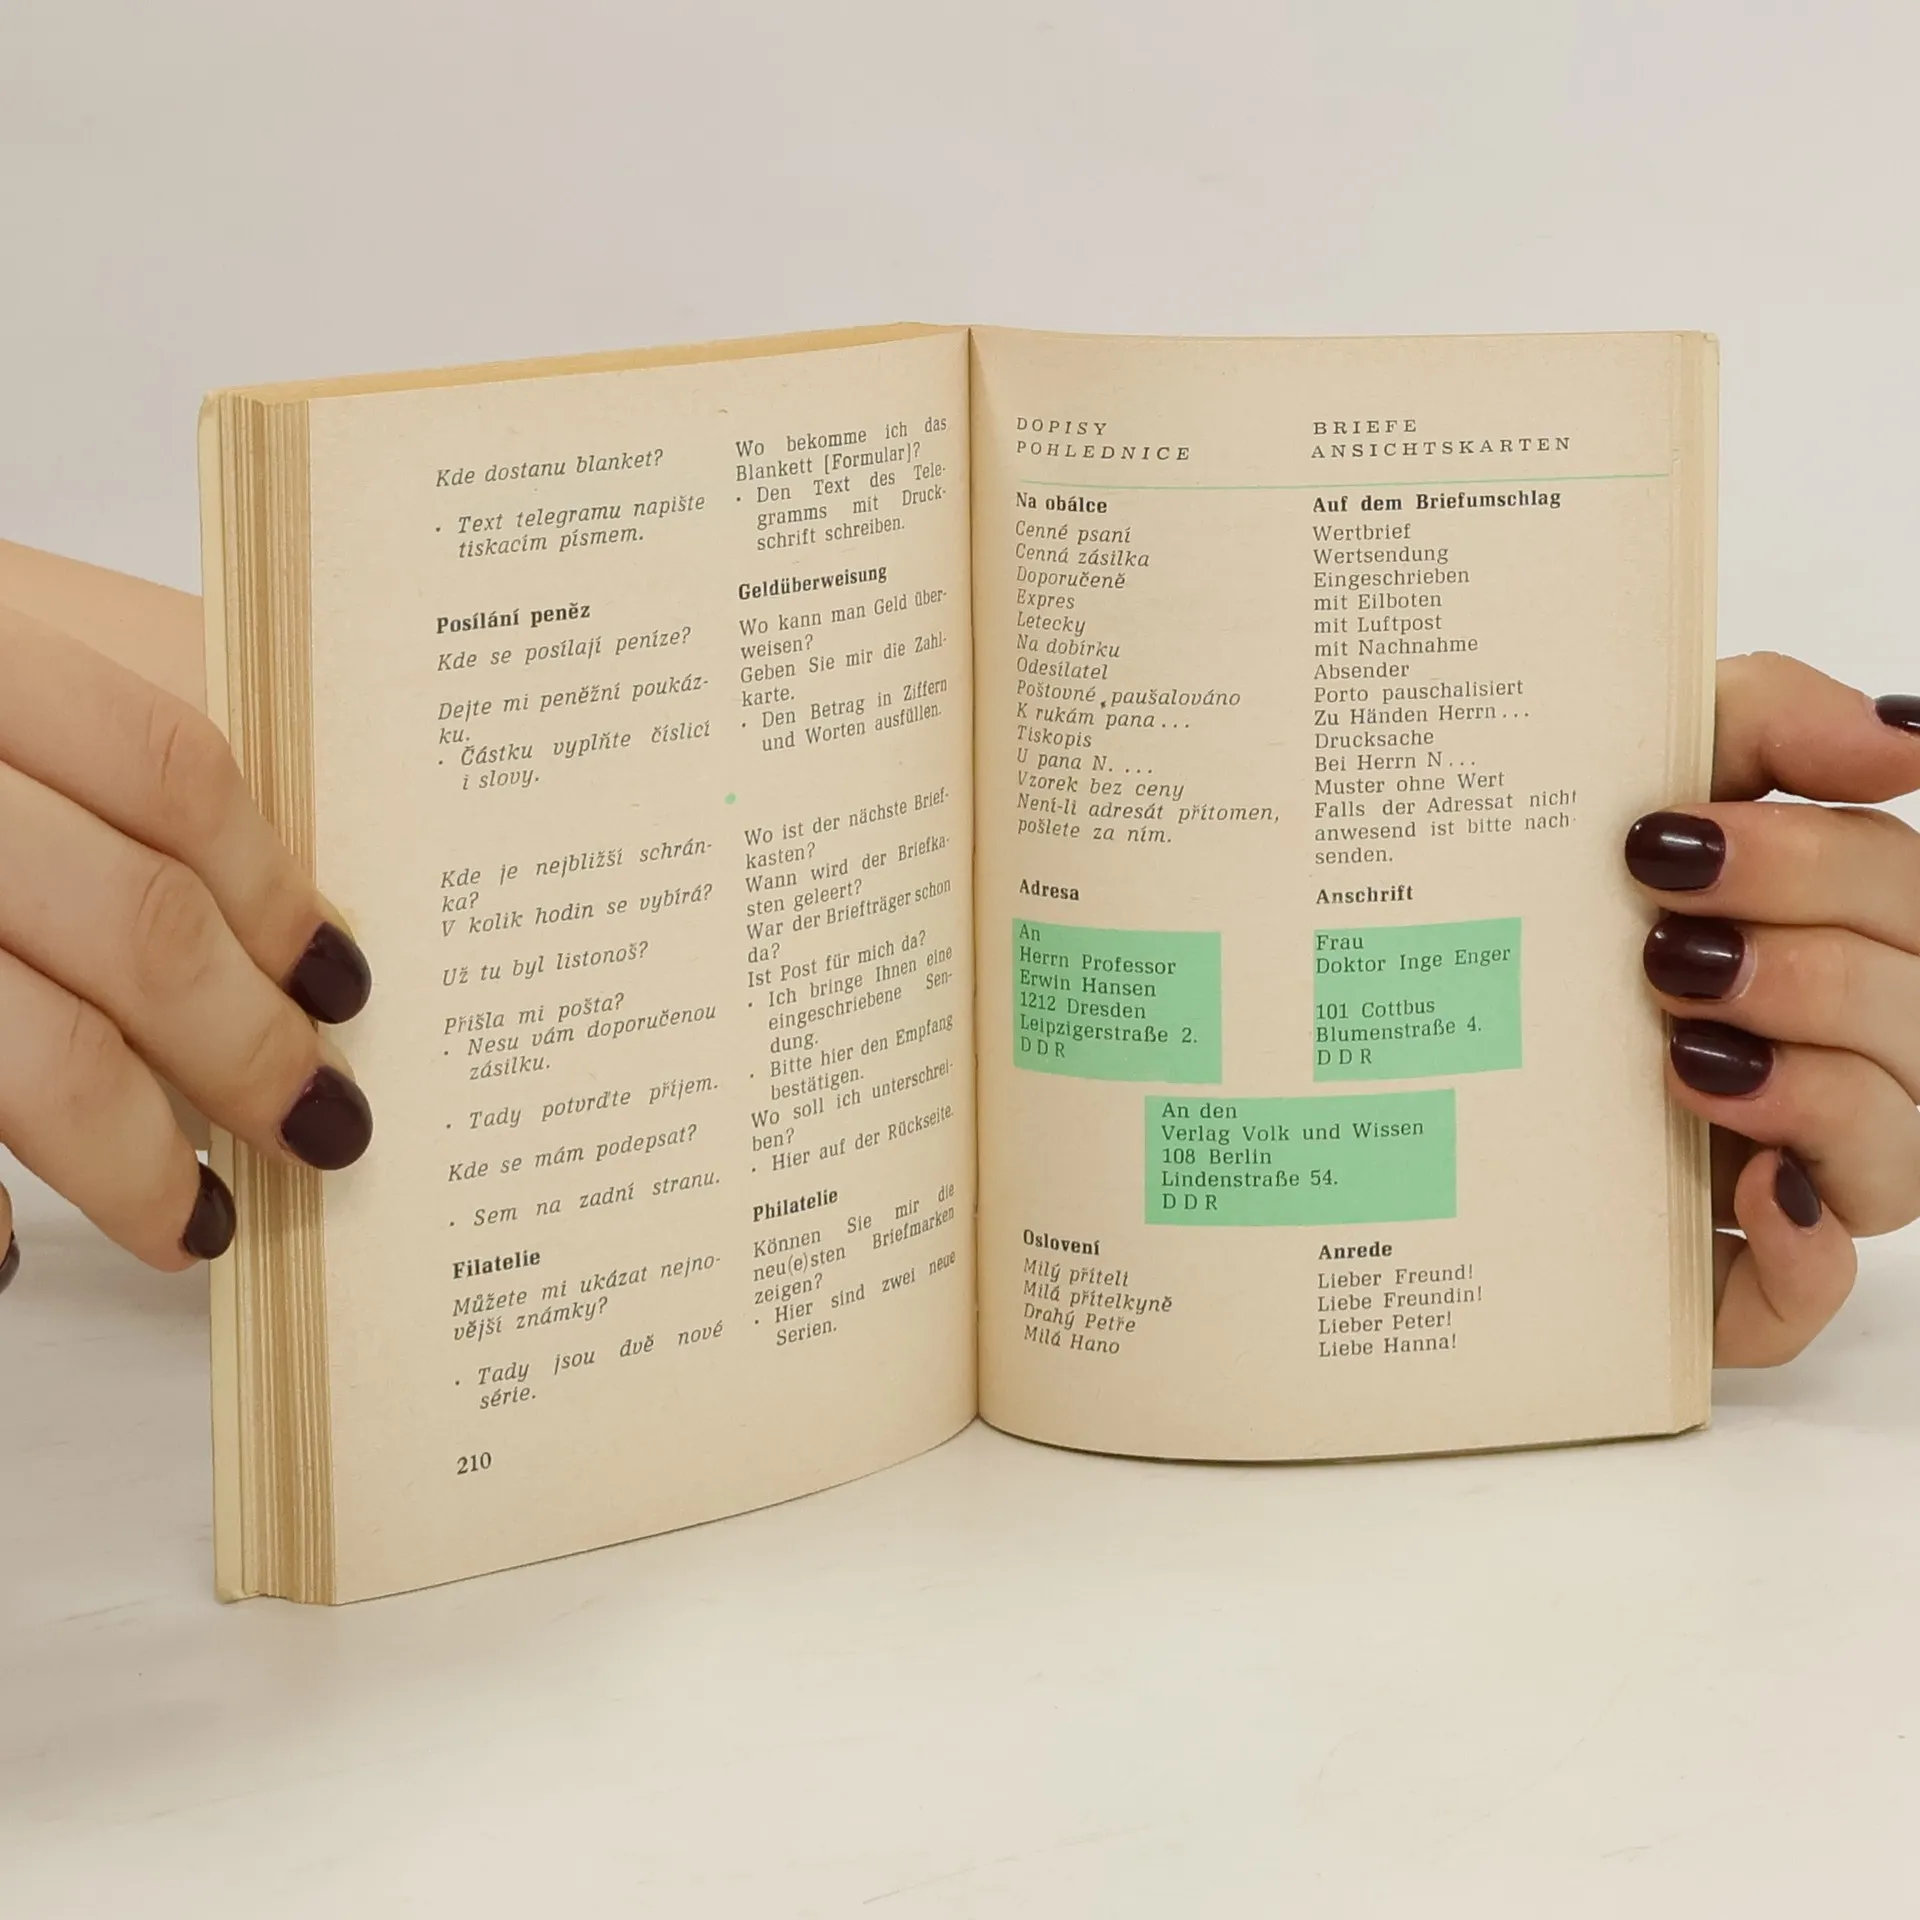 Kde dostanu blanket?
• Text telegramu napište
tiskacím písmem.
Posílání peněz
Kde se posílají peníze?
Dejte mi peněžní poukáz-
ku.
• Částku vyplňte číslicí
i slovy.
Kde je nejbližší schrán-
ka?
V kolik hodin se vybírá?
Už tu byl listonoš?
Přišla mi pošta?
• Nesu vám doporučenou
zásilku.
• Tady potvrďte příjem.
Kde se mám podepsat?
• Sem na zadní stranu.
Filatelie
Můžete mi ukázat nejno-
vější známky?
• Tady jsou dvě nové
série.
210
Wo bekomme ich das
Blankett [Formular]?
• Den Text des Tele-
gramms mit Druck-
schrift schreiben.
Geldüberweisung
Wo kann man Geld über-
weisen?
Geben Sie mir die Zahl-
karte.
• Den Betrag in Ziffern
und Worten ausfüllen.
Wo ist der nächste Brief-
kasten?
Wann wird der Briefka-
sten geleert?
War der Briefträger schon
da?
Ist Post für mich da?
• Ich bringe Ihnen eine
eingeschriebene Sen-
dung.
• Bitte hier den Empfang
bestätigen.
Wo soll ich unterschrei-
ben?
• Hier auf der Rückseite.
Philatelie
Können Sie mir die
neu(e)sten Briefmarken
zeigen?
• Hier sind zwei neue
Serien.
DOPISY
POHLEDNICE
Na obálce
Cenné psaní
Cenná zásilka
Doporučeně
Expres
Letecky
Na dobírku
Odesílatel
Poštovné paušalováno
K rukám pana...
Tiskopis
U pana N. ...
Vzorek bez ceny
Není-li adresát přítomen,
pošlete za ním.
BRIEFE
ANSICHTSKARTEN
Auf dem Briefumschlag
Wertbrief
Wertsendung
Eingeschrieben
mit Eilboten
mit Luftpost
mit Nachnahme
Absender
Porto pauschalisiert
Zu Händen Herrn...
Drucksache
Bei Herrn N...
Muster ohne Wert
Falls der Adressat nicht
anwesend ist bitte nach-
senden.
Adresa
An
Herrn Professor
Erwin Hansen
1212 Dresden
Leipzigerstraße 2.
DDR
Anschrift
Frau
Doktor Inge Enger
101 Cottbus
Blumenstraße 4.
DDR
An den
Verlag Volk und Wissen
108 Berlin
Lindenstraße 54.
DDR
Oslovení
Milý příteli
Milá přítelkyně
Drahý Petře
Milá Hano
Anrede
Lieber Freund!
Liebe Freundin!
Lieber Peter!
Liebe Hanna!